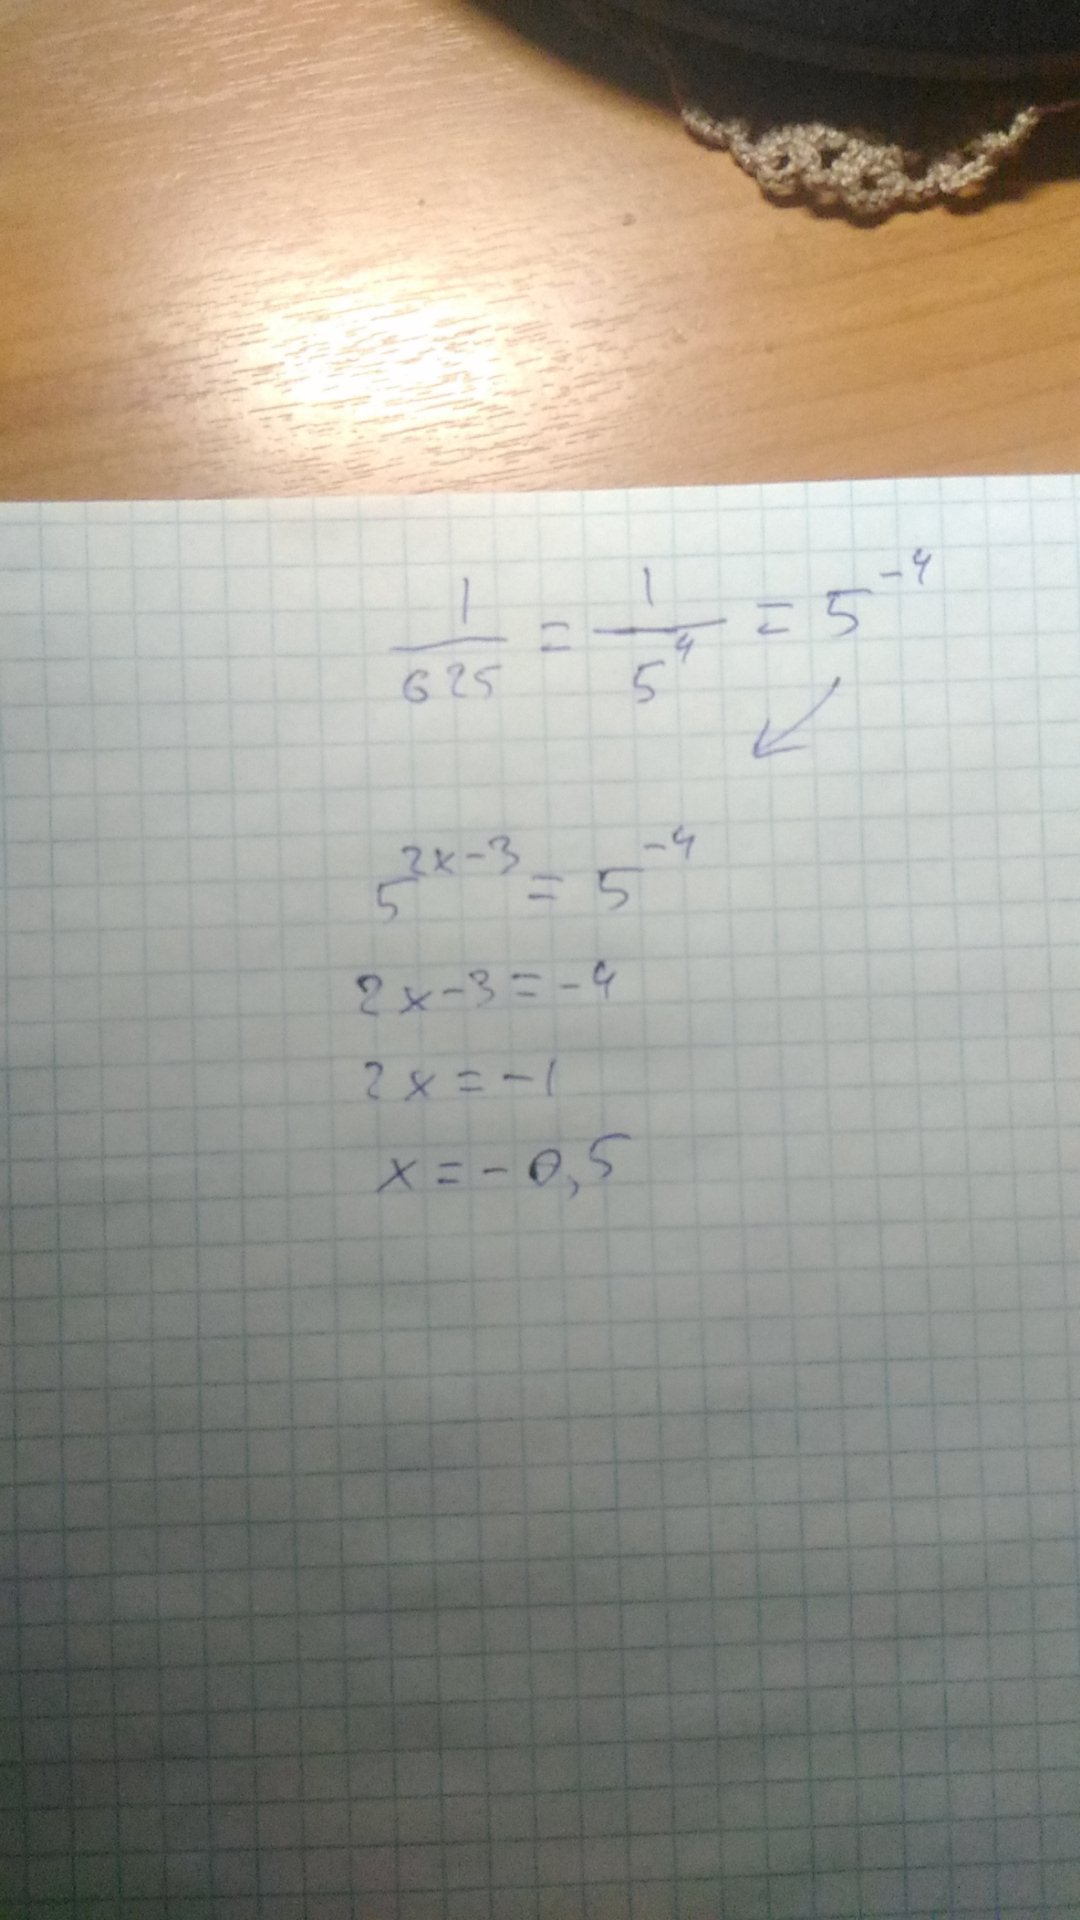 1/625 = 1/5^4 = 5^-4
5^2x-3 = 5^-4
2x-3=-4
2x=-1
x=-0,5